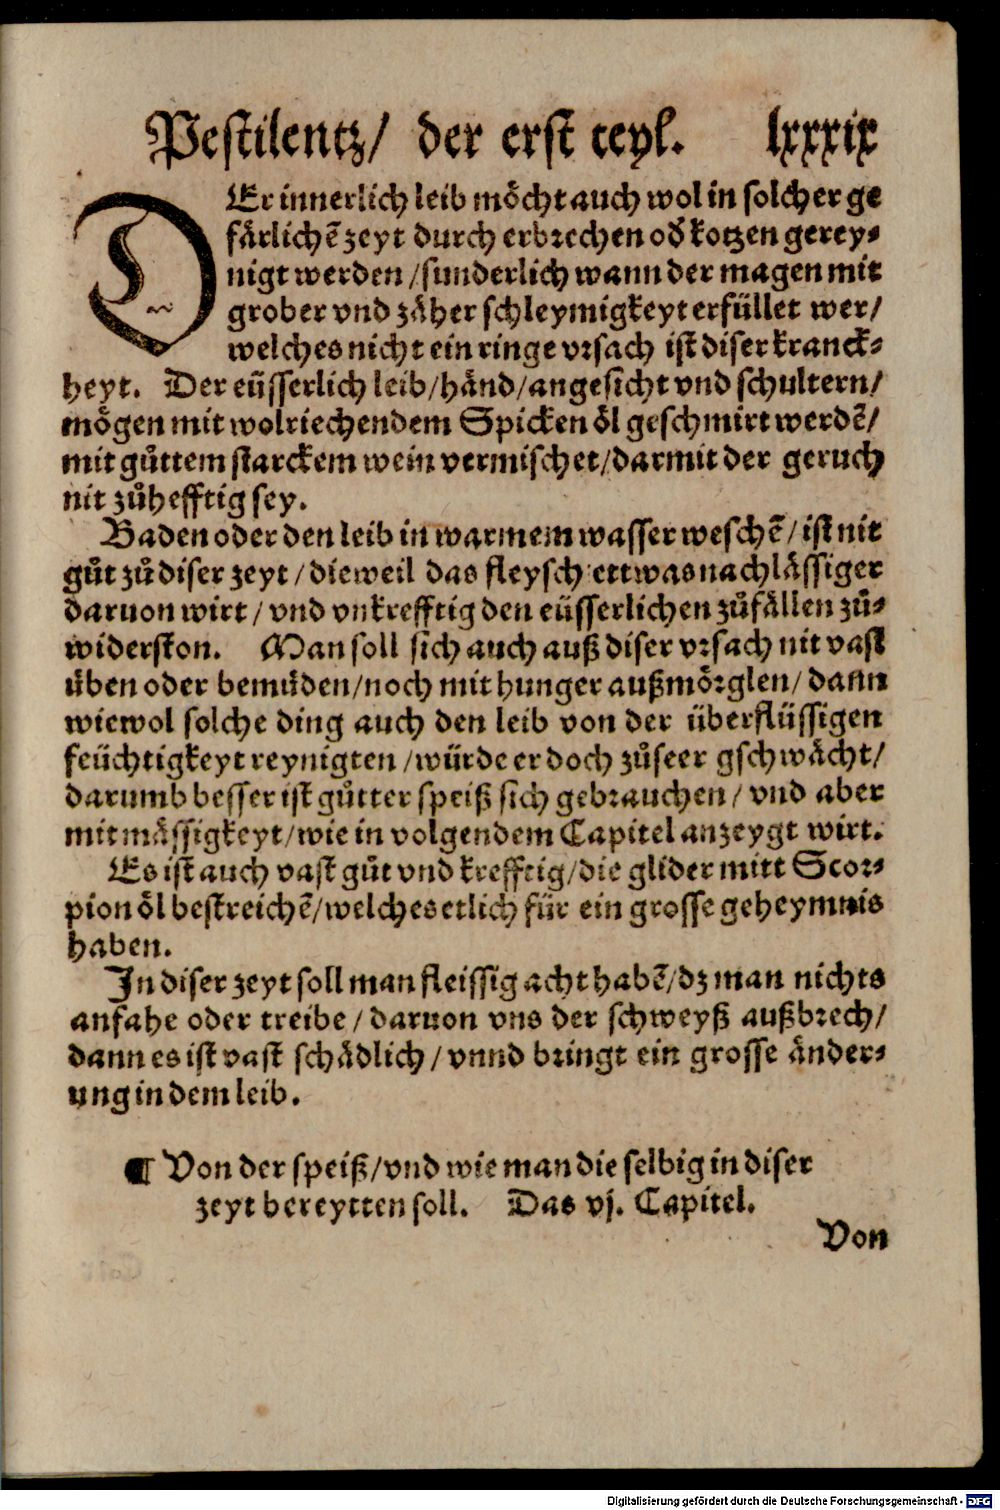 Pestilentz/ der erst teyl. lxxxix
DEr innerlich leib möcht auch wol in solcher ge
färlichẽ zeyt durch erbrechen oď kotzen gerey-
nigt werden/sunderlich wann der magen mit
grober vnd zäher schleymigkeyt erfüllet wer/
welches nicht ein ringe vrsach ist diser kranck-
heyt. Der eüsserlich leib/händ/angesicht vnd schultern/
mögen mit wolriechendem Spicken öl geschmirt werdẽ/
mit gůttem starckem wein vermischet/darmit der geruch
nit zůhefftig sey.
Baden oder den leib in warmem wasser weschẽ/ist nit
gůt zů diser zeyt/dieweil das fleysch ettwas nachlässiger
daruon wirt/vnd vnkrefftig den eüsserlichen zůfällen zů-
widerston. Man soll sich auch auß diser vrsach nit vast
üben oder bemüden/noch mit hunger außmörglen/dann
wiewol solche ding auch den leib von der überflüssigen
feüchtigkeyt reynigten/würde er doch zůseer gschwächt/
darumb besser ist gůtter speiß sich gebrauchen/vnd aber
mit mässigkeyt/wie in volgendem Capitel anzeygt wirt.
Es ist auch vast gůt vnd krefftig/die glider mitt Scor-
pion öl bestreichẽ/welches etlich für ein grosse geheymnis
haben.
In diser zeyt soll man fleissig acht habẽ/dz man nichts
anfahe oder treibe/daruon vns der schweyß außbrech/
dann es ist vast schädlich/vnnd bringt ein grosse änder-
ung in dem leib.
¶ Von der speiß/vnd wie man die selbig in diser
zeyt bereytten soll. Das vj. Capitel.
Von
Digitalisierung gefördert durch die Deutsche Forschungsgemeinschaft - DFG